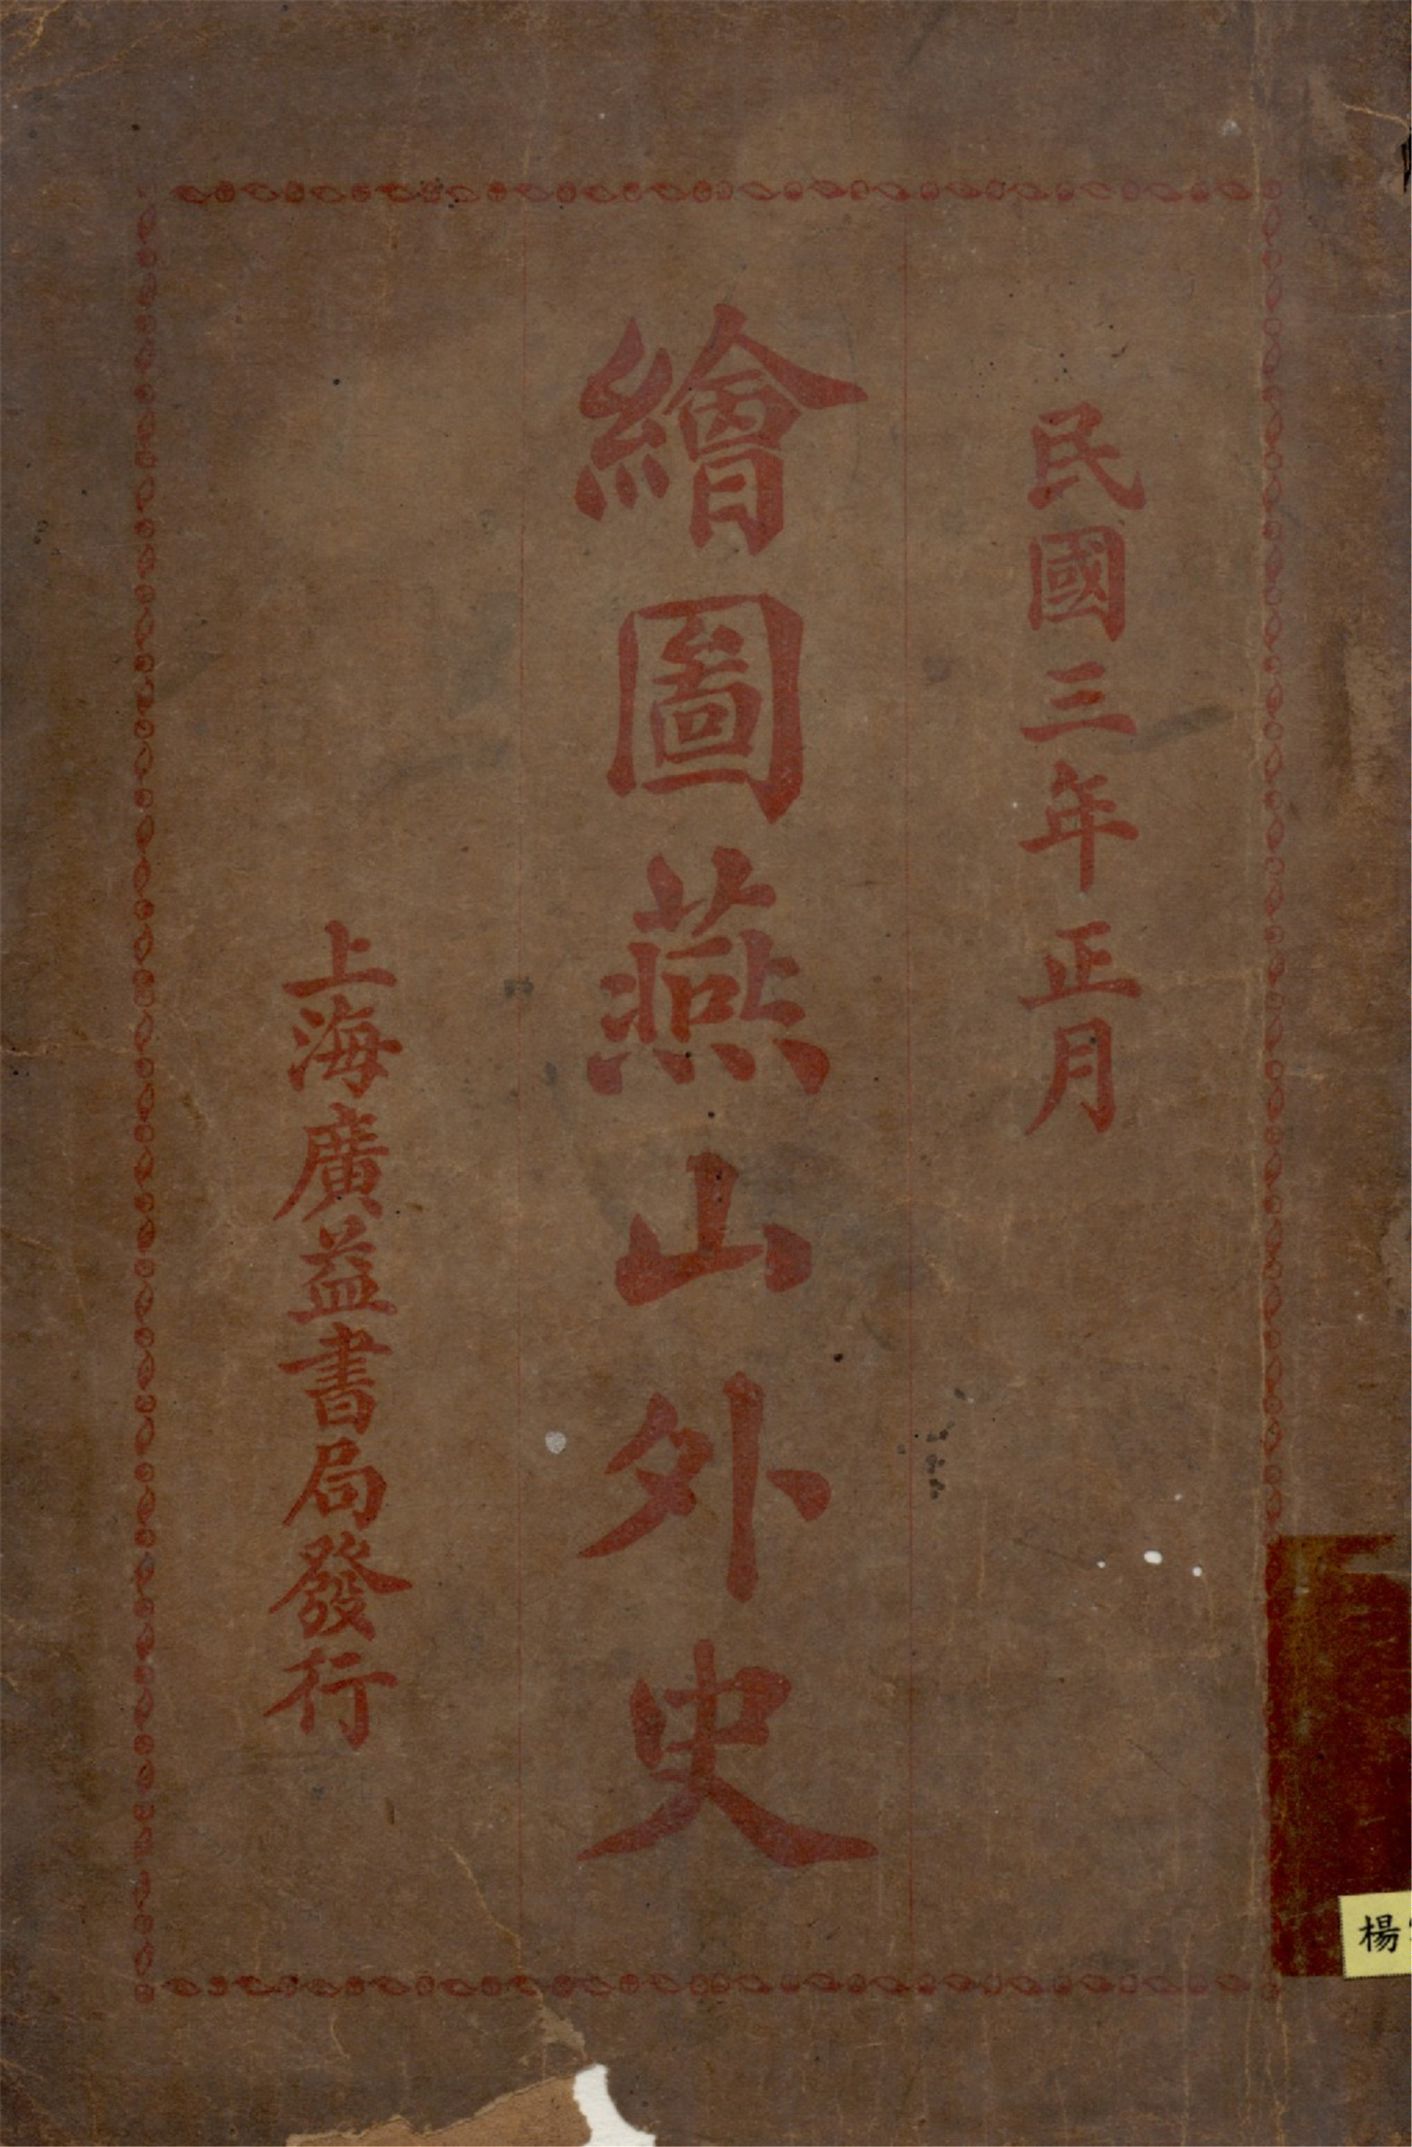 民國三年正月
繪圖燕山外史
上海廣益書局發行
楊